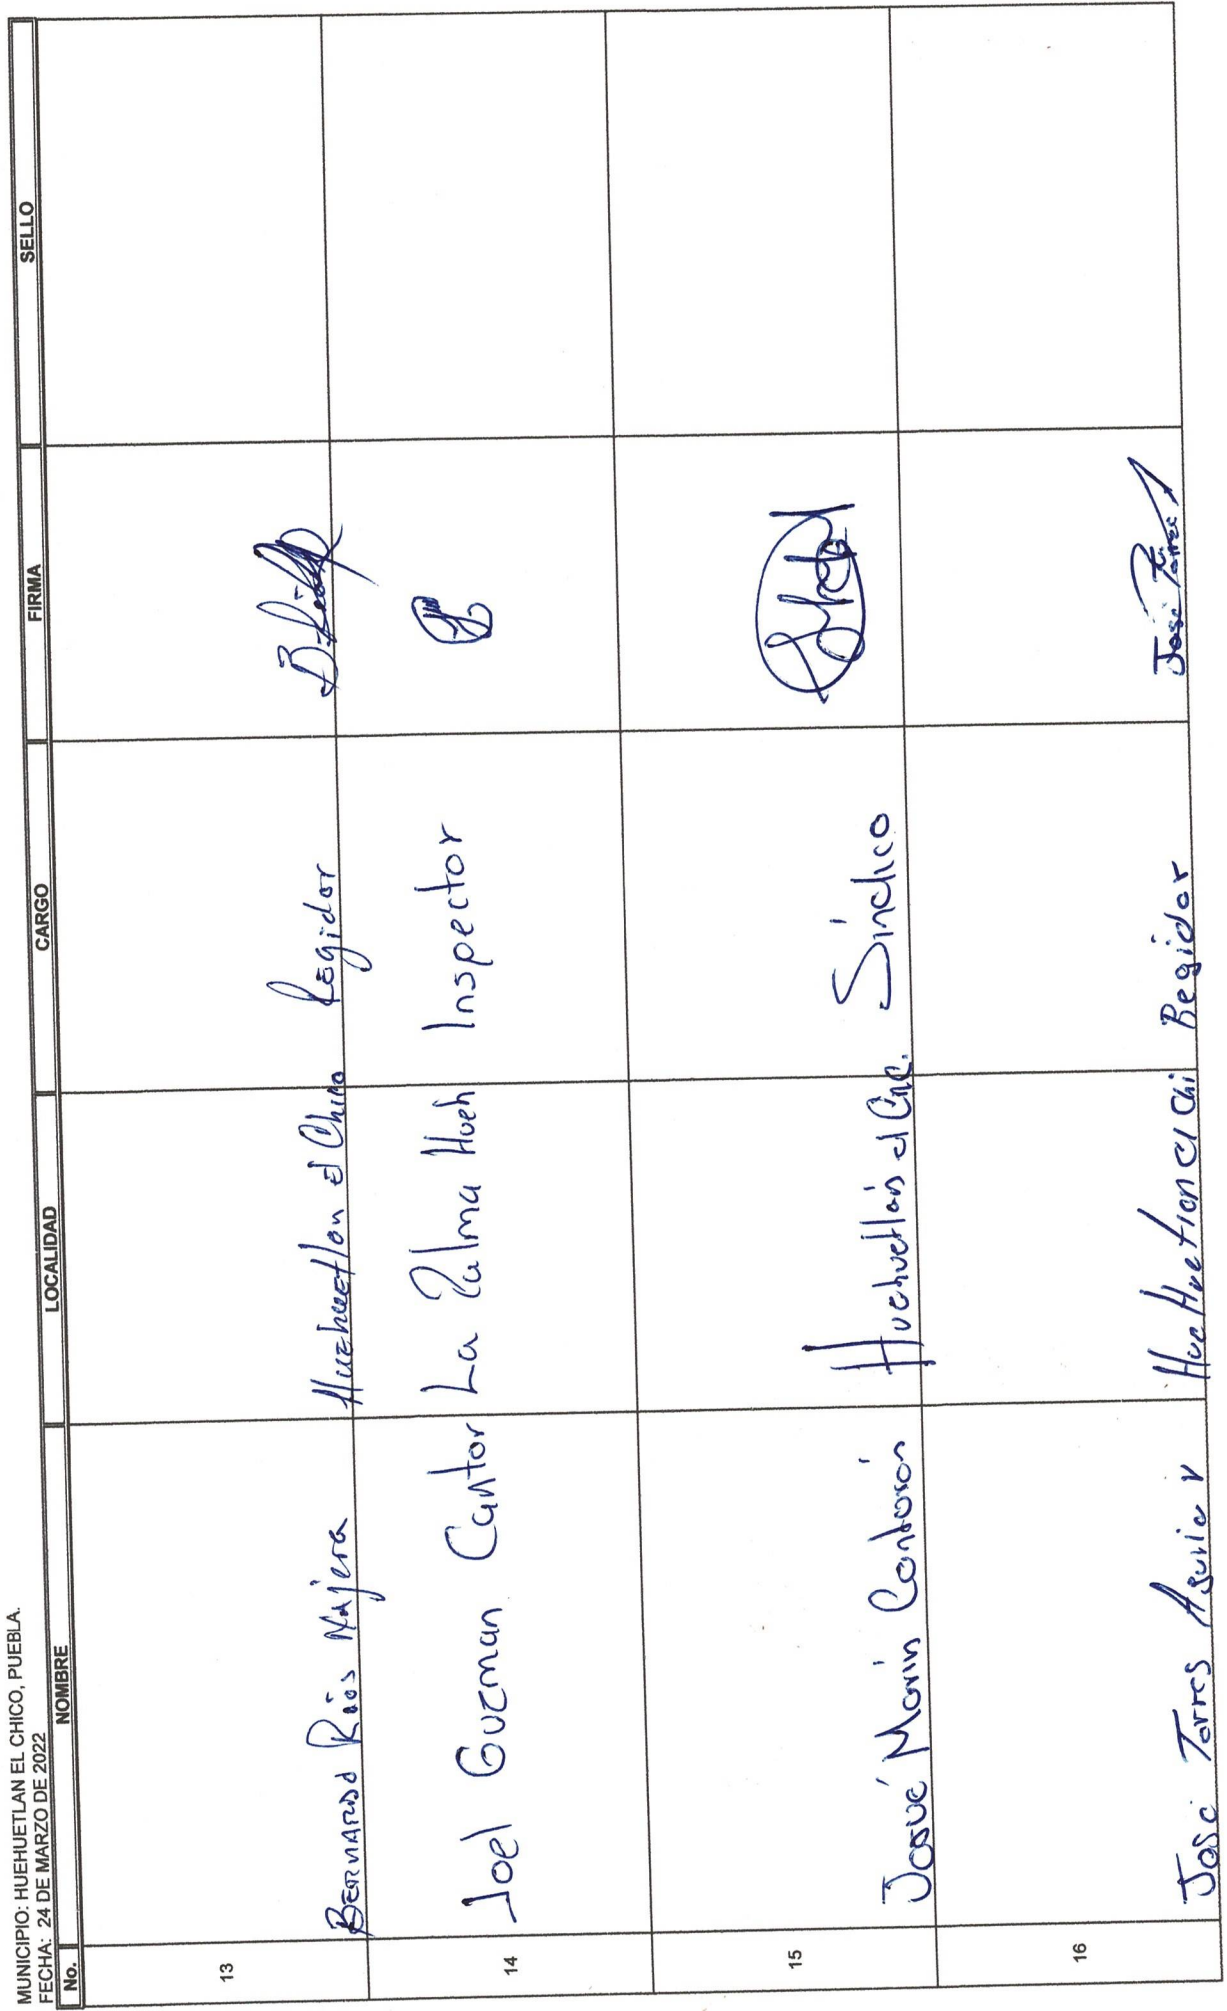 MUNICIPIO: HUEHUETLAN EL CHICO, PUEBLA.
FECHA: 24 DE MARZO DE 2022
No. NOMBRE LOCALIDAD CARGO FIRMA SELLO
13 Bernardo Ríos Nájera Huehuetlan el Chico Regidor
14 Joel Guzman Cantor La Palma Hueh Inspector
15 Josué Marín Huehuetlán el Síndico
16 José Torres Huehuetlan el Chi Regidor José Torres